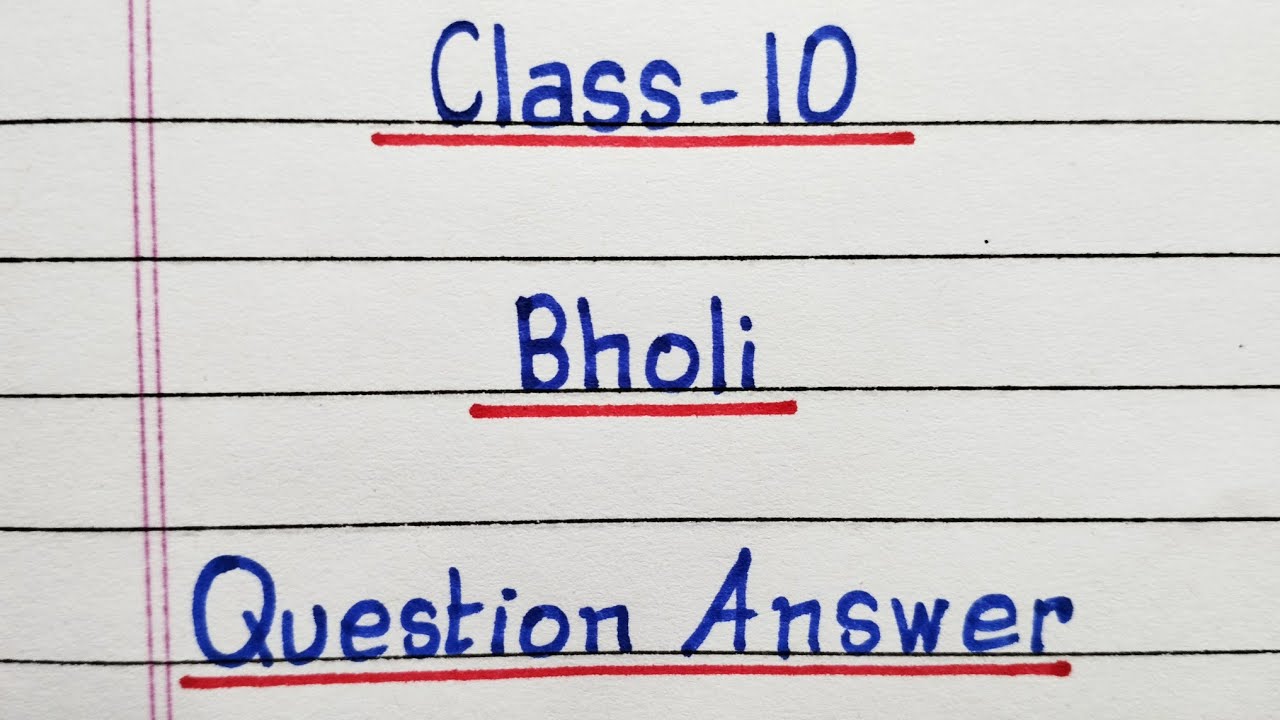 Class-10
Bholi
Question Answer